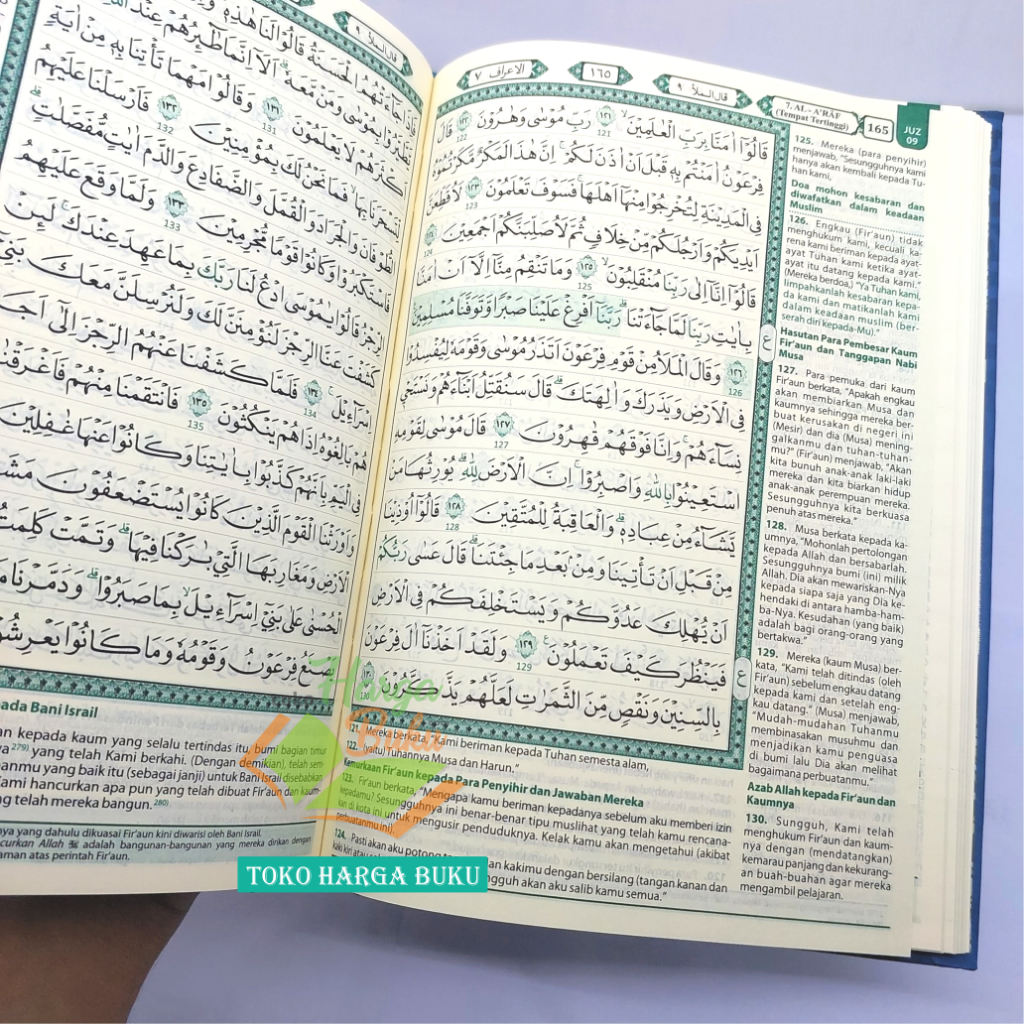 الاعراف ٧
١٦٥
قال الملأ ٩
7. AL - A'RĀF
(Tempat Tertinggi)
165
JUZ
09
قَالُوْٓا اٰمَنَّا بِرَبِّ الْعٰلَمِيْنَۙ ١٢١ رَبِّ مُوْسٰى وَهٰرُوْنَ ١٢٢ قَالَ
121
فِرْعَوْنُ اٰمَنْتُمْ بِهٖ قَبْلَ اَنْ اٰذَنَ لَكُمْۚ اِنَّ هٰذَا لَمَكْرٌ مَّكَرْتُمُوْهُ
فِى الْمَدِيْنَةِ لِتُخْرِجُوْا مِنْهَآ اَهْلَهَاۚ فَسَوْفَ تَعْلَمُوْنَ ١٢٣ لَاُقَطِّعَنَّ
123
اَيْدِيَكُمْ وَاَرْجُلَكُمْ مِّنْ خِلَافٍ ثُمَّ لَاُصَلِّبَنَّكُمْ اَجْمَعِيْنَ ١٢٤
قَالُوْٓا اِنَّآ اِلٰى رَبِّنَا مُنْقَلِبُوْنَۙ ١٢٥ وَمَا تَنْقِمُ مِنَّآ اِلَّآ اَنْ اٰمَنَّا
125
بِاٰيٰتِ رَبِّنَا لَمَّا جَاۤءَتْنَاۗ رَبَّنَآ اَفْرِغْ عَلَيْنَا صَبْرًا وَّتَوَفَّنَا مُسْلِمِيْنَ
١٢٦ وَقَالَ الْمَلَاُ مِنْ قَوْمِ فِرْعَوْنَ اَتَذَرُ مُوْسٰى وَقَوْمَهٗ لِيُفْسِدُوْا
126
فِى الْاَرْضِ وَيَذَرَكَ وَاٰلِهَتَكَۗ قَالَ سَنُقَتِّلُ اَبْنَاۤءَهُمْ وَنَسْتَحْيٖ
نِسَاۤءَهُمْۚ وَاِنَّا فَوْقَهُمْ قَاهِرُوْنَ ١٢٧ قَالَ مُوْسٰى لِقَوْمِهِ
127
اسْتَعِيْنُوْا بِاللّٰهِ وَاصْبِرُوْاۚ اِنَّ الْاَرْضَ لِلّٰهِ يُوْرِثُهَا مَنْ
يَّشَاۤءُ مِنْ عِبَادِهٖۗ وَالْعَاقِبَةُ لِلْمُتَّقِيْنَ ١٢٨ قَالُوْٓا اُوْذِيْنَا
128
مِنْ قَبْلِ اَنْ تَأْتِيَنَا وَمِنْۢ بَعْدِ مَا جِئْتَنَاۗ قَالَ عَسٰى رَبُّكُمْ
اَنْ يُّهْلِكَ عَدُوَّكُمْ وَيَسْتَخْلِفَكُمْ فِى الْاَرْضِ
فَيَنْظُرَ كَيْفَ تَعْمَلُوْنَ ١٢٩ وَلَقَدْ اَخَذْنَآ اٰلَ فِرْعَوْنَ
129
بِالسِّنِيْنَ وَنَقْصٍ مِّنَ الثَّمَرٰتِ لَعَلَّهُمْ يَذَّكَّرُوْنَ
ع
ع
121. Mereka berkata, "Kami beriman kepada Tuhan semesta alam,
122. (yaitu) Tuhannya Musa dan Harun."
Kemurkaan Fir'aun kepada Para Penyihir dan Jawaban Mereka
123. Fir'aun berkata, "Mengapa kamu beriman kepadanya sebelum aku memberi izin
kepadamu? Sesungguhnya ini benar-benar tipu muslihat yang telah kamu rencana-
kan di kota ini untuk mengusir penduduknya. Kelak kamu akan mengetahui (akibat
perbuatanmu ini).
124. Pasti akan aku potong tangan dan kakimu dengan bersilang (tangan kanan dan
kaki kiri atau sungguh akan aku salib kamu semua."
125. Mereka (para penyihir)
menjawab, "Sesungguhnya kami
hanya akan kembali kepada Tu-
han kami,
Doa mohon kesabaran dan
diwafatkan dalam keadaan
Muslim
126. Engkau (Fir'aun) tidak
menghukum kami, kecuali ka-
rena kami beriman kepada ayat-
ayat Tuhan kami ketika ayat-
ayat itu datang kepada kami."
(Mereka berdoa,) "Ya Tuhan kami,
limpahkanlah kesabaran kepa-
da kami dan matikanlah kami
dalam keadaan muslim (ber-
serah diri kepada-Mu)."
Hasutan Para Pembesar Kaum
Fir'aun dan Tanggapan Nabi
Musa
127. Para pemuka dari kaum
Fir'aun berkata, "Apakah engkau
akan membiarkan Musa dan
kaumnya sehingga mereka ber-
buat kerusakan di negeri ini
(Mesir) dan dia (Musa) mening-
galkanmu dan tuhan-tuhan-
mu?" (Fir'aun) menjawab, "Akan
kita bunuh anak-anak laki-laki
mereka dan kita biarkan hidup
anak-anak perempuan mereka.
Sesungguhnya kita berkuasa
penuh atas mereka."
128. Musa berkata kepada ka-
umnya, "Mohonlah pertolongan
kepada Allah dan bersabarlah.
Sesungguhnya bumi (ini) milik
Allah. Dia akan mewariskan-Nya
kepada siapa saja yang Dia ke-
hendaki di antara hamba-ham-
ba-Nya. Kesudahan (yang baik)
adalah bagi orang-orang yang
bertakwa."
129. Mereka (kaum Musa) ber-
kata, "Kami telah ditindas (oleh
Fir'aun) sebelum engkau datang
kepada kami dan setelah eng-
kau datang." (Musa) menjawab,
"Mudah-mudahan Tuhanmu
membinasakan musuhmu dan
menjadikan kamu penguasa
di bumi lalu Dia akan melihat
bagaimana perbuatanmu."
Azab Allah kepada Fir'aun dan
Kaumnya
130. Sungguh, Kami telah
menghukum Fir'aun dan kaum-
nya dengan (mendatangkan)
kemarau panjang dan kekurang-
an buah-buahan agar mereka
mengambil pelajaran.
قال الملأ ٩
فَاِذَا جَاۤءَتْهُمُ الْحَسَنَةُ قَالُوْا لَنَا هٰذِهٖۚ
يَّطَّيَّرُوْا بِمُوْسٰى وَمَنْ مَّعَهٗۗ اَلَآ اِنَّمَا طٰۤىِٕرُهُمْ عِنْدَ اللّٰهِ
كْثَرَهُمْ لَا يَعْلَمُوْنَ ١٣١ وَقَالُوْا مَهْمَا تَأْتِنَا بِهٖ مِنْ اٰيَةٍ
131
لِّتَسْحَرَنَا بِهَاۙ فَمَا نَحْنُ لَكَ بِمُؤْمِنِيْنَ ١٣٢ فَاَرْسَلْنَا عَلَيْهِمُ
132
الطُّوْفَانَ وَالْجَرَادَ وَالْقُمَّلَ وَالضَّفَادِعَ وَالدَّمَ اٰيٰتٍ مُّفَصَّلٰتٍۗ
فَاسْتَكْبَرُوْا وَكَانُوْا قَوْمًا مُّجْرِمِيْنَ ١٣٣ وَلَمَّا وَقَعَ عَلَيْهِمُ
133
الرِّجْزُ قَالُوْا يٰمُوْسَى ادْعُ لَنَا رَبَّكَ بِمَا عَهِدَ عِنْدَكَۚ لَىِٕنْ
كَشَفْتَ عَنَّا الرِّجْزَ لَنُؤْمِنَنَّ لَكَ وَلَنُرْسِلَنَّ مَعَكَ بَنِيْٓ
اِسْرَاۤءِيْلَۚ ١٣٤ فَلَمَّا كَشَفْنَا عَنْهُمُ الرِّجْزَ اِلٰٓى اَجَلٍ
134
هُمْ بٰلِغُوْهُ اِذَا هُمْ يَنْكُثُوْنَ ١٣٥ فَانْتَقَمْنَا مِنْهُمْ فَاَغْرَقْنٰ
135
فِى الْيَمِّ بِاَنَّهُمْ كَذَّبُوْا بِاٰيٰتِنَا وَكَانُوْا عَنْهَا غٰفِلِيْنَ
وَاَوْرَثْنَا الْقَوْمَ الَّذِيْنَ كَانُوْا يُسْتَضْعَفُوْنَ مَشَا
الْاَرْضِ وَمَغَارِبَهَا الَّتِيْ بٰرَكْنَا فِيْهَاۗ وَتَمَّتْ كَلِمَتُ
الْحُسْنٰى عَلٰى بَنِيْٓ اِسْرَاۤءِيْلَۙ بِمَا صَبَرُوْاۗ وَدَمَّرْنَا مَا
يَصْنَعُ فِرْعَوْنُ وَقَوْمُهٗ وَمَا كَانُوْا يَعْرِشُوْ
pada Bani Israil
an kepada kaum yang selalu tertindas itu, bumi bagian timur
ya 279) yang telah Kami berkahi. (Dengan demikian), telah sem-
anmu yang baik itu (sebagai janji) untuk Bani Israil disebabkan
Kami hancurkan apa pun yang telah dibuat Fir'aun dan kaum-
g telah mereka bangun. 280)
nya yang dahulu dikuasai Fir'aun kini diwarisi oleh Bani Israil.
ncurkan Allah ﷻ adalah bangunan-bangunan yang mereka dirikan dengan
aman atas perintah Fir'aun.
Harga
Buku
TOKO HARGA BUKU